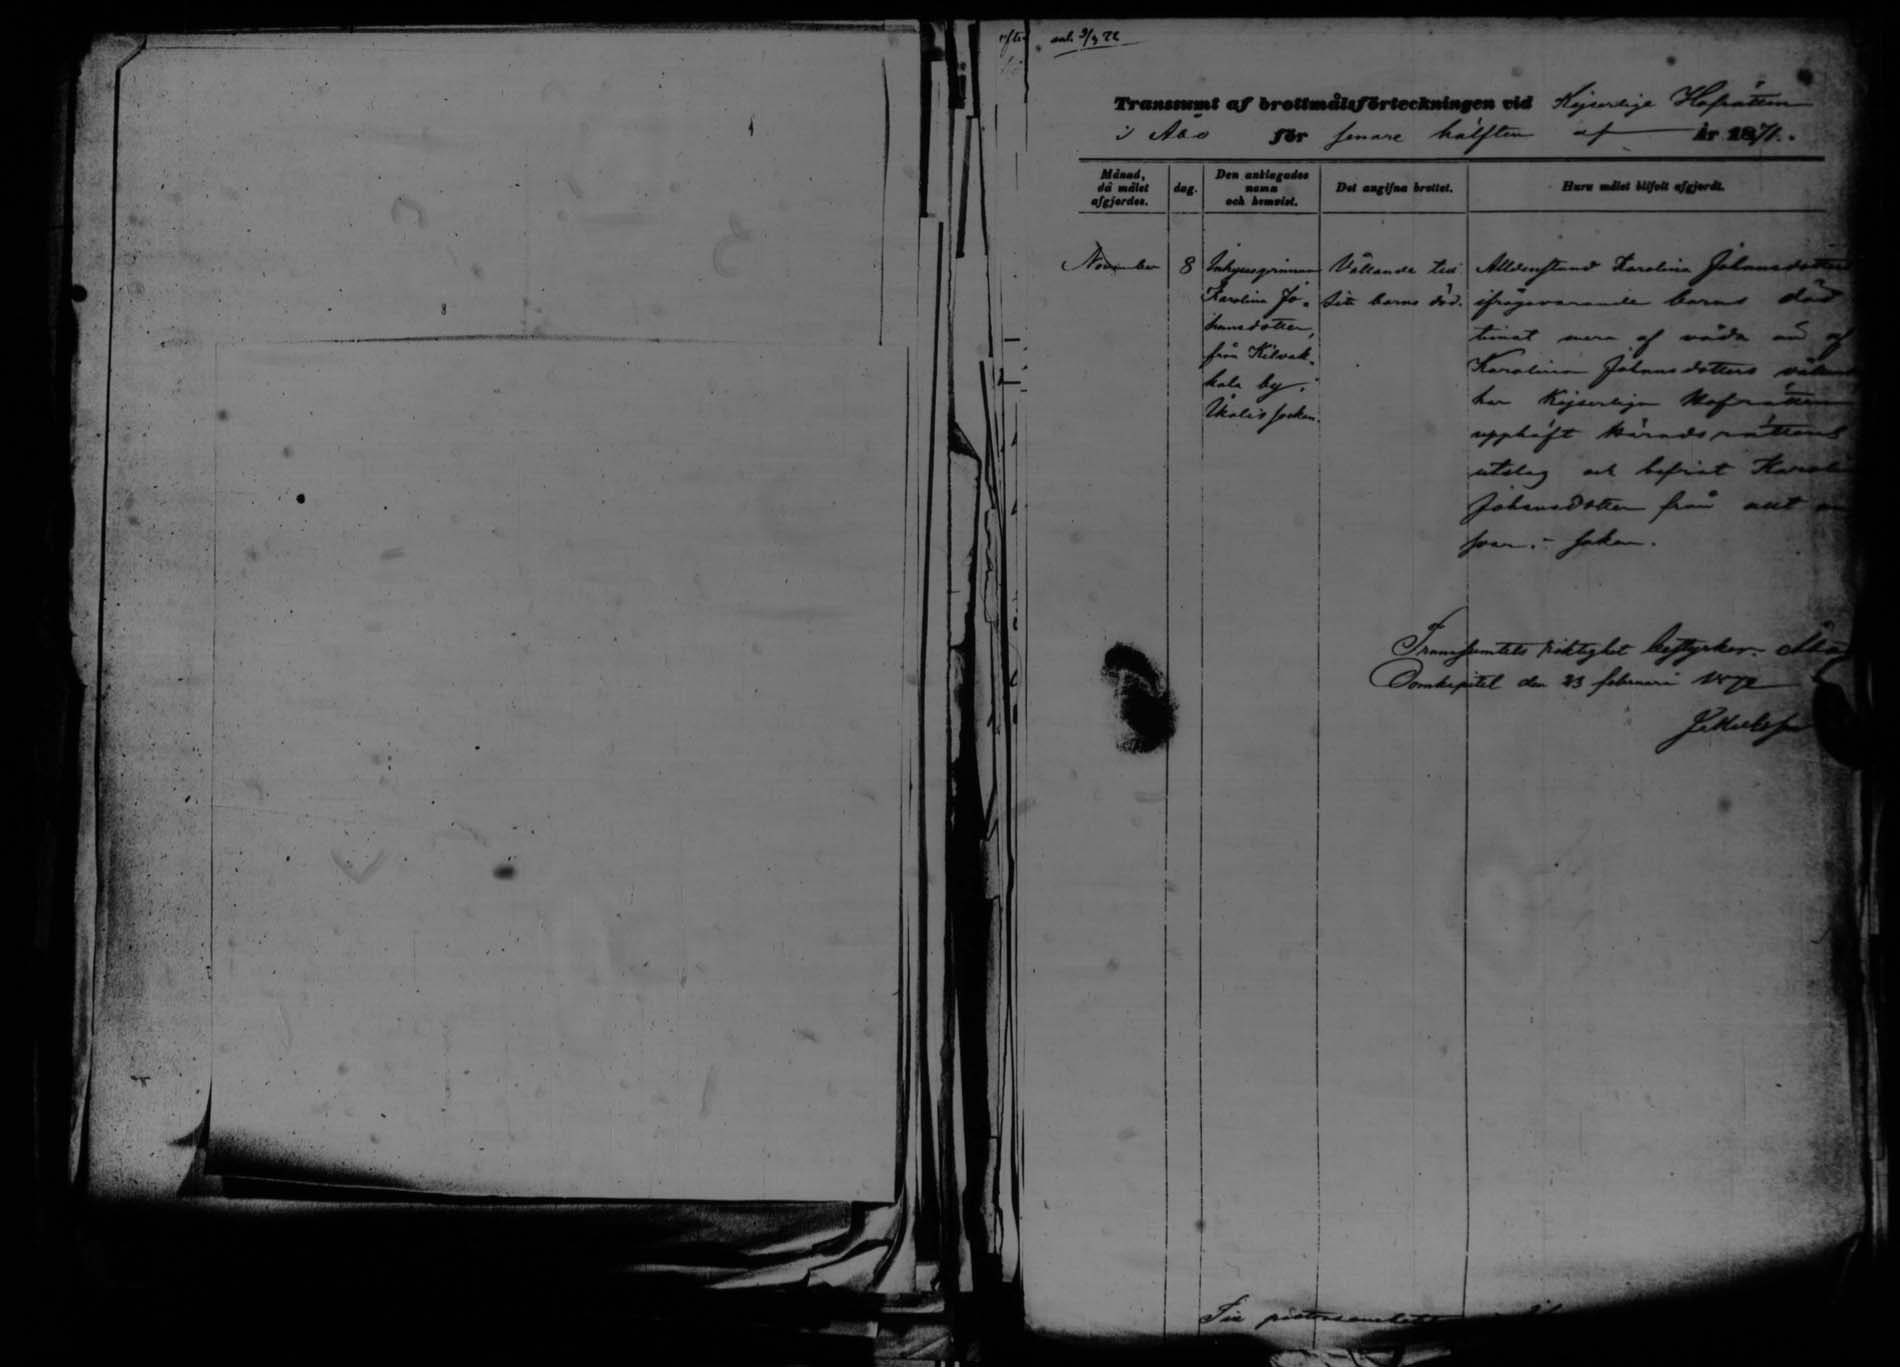 ank. 9/3 72
Transsumt af brottmålsförteckningen vid Kejserlige Hofrätten
i Åbo för senare hälften af år 1871.
Månad, då målet afgjordes.
dag.
Den anklagades namn och hemvist.
Det angifna brottet.
Huru målet blifvit afgjordt.
November
8
Inhysesqvinnan
Karolina Jo-
hansdotter,
från Kilvak-
kala by,
Ikalis socken.
Vållande till
sitt barns död.
Alldenstund Karolina Johansdotters
ifrågavarande barns död
timat mera af våda än af
Karolina Johansdotters vållande
har Kejserliga Hofrätten
upphäft Häradsrättens
utslag och befriat Karolina
Johansdotter från allt an
svar i saken.
Transsumtets riktighet bestyrker. Åbo
Domkapitel den 23 februari 1872
Till pastorsembetet